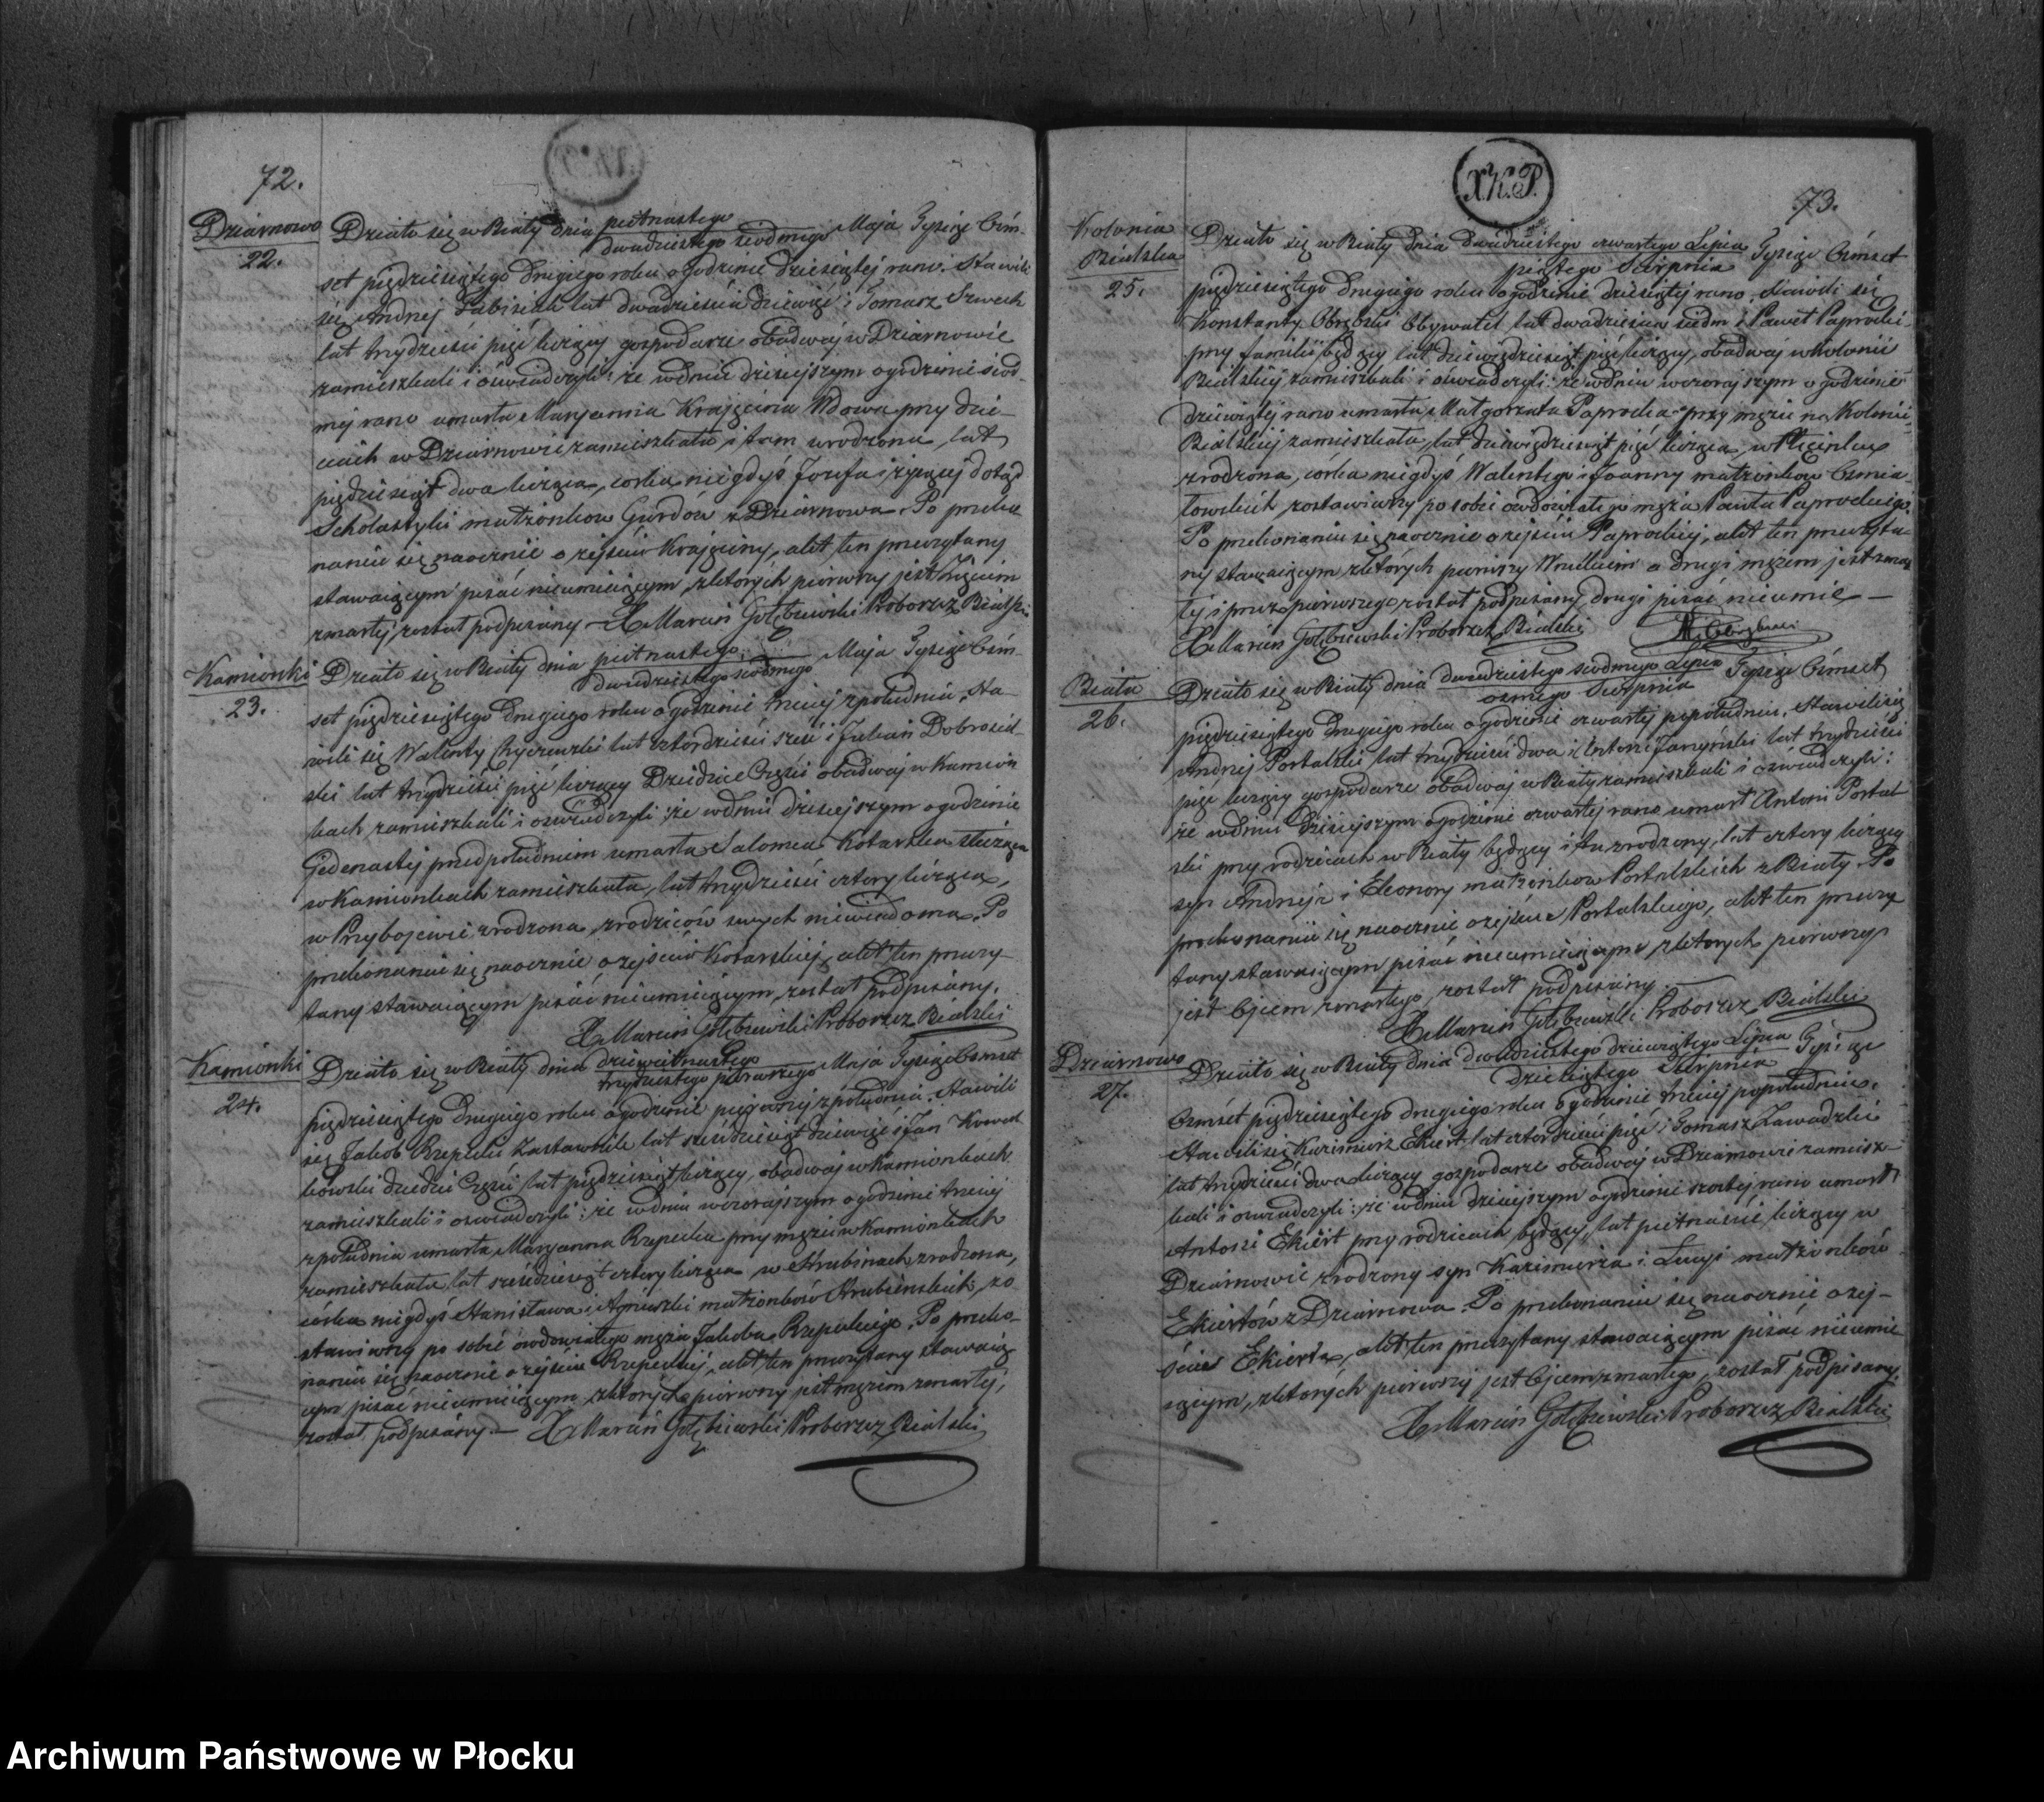 72.
Dziarnowo
22.
Działo się w Biały dnia piętnastego Maja Tysiąc Ośm-
dwudziestego siódmego
set pięćdziesiątego drugiego roku o godzinie dziesiątej rano. Stawili
się Andrzej Fabisiak lat dwadzieścia dziewięć i Tomasz Szwech
lat trzydzieści pięć liczący gospodarze obadwaj w Dziarnowie
zamieszkali i oświadczyli: że w dniu dzisiejszym o godzinie siód-
mej rano umarła Maryanna Krajzina Wdowa przy dzie-
ciach w Dziarnowie zamieszkała i tam urodzona, lat
pięćdziesiąt dwa licząca, córka niegdyś Józefa i żyjącej dotąd
Scholastyki małżonków Gurdów z Dziarnowa. Po przeko
naniu się naocznie o zejściu Krajziny, akt ten przeczytany
stawaiącym pisać nieumieiącym, z których pierwszy jest Zięciem
zmarłej, został podpisany X Marcin Gołębiewski Proboszcz Bialski
Kamionki
23.
Działo się w Biały dnia piętnastego Maja Tysiąc Ośm-
dwudziestego siódmego
set pięćdziesiątego drugiego roku o godzinie trzeciej z południa. Sta-
wili się Walenty Ryczewski lat czterdzieści sześć i Julian Dobrosiel-
ski lat trzydzieści pięć liczący Dziedzice Części obadwaj w Kamion
kach zamieszkali i oświadczyli: że w dniu dzisiejszym o godzinie
Jedenastej przed południem umarła Salomea Kotarska służąca
w Kamionkach zamieszkała, lat trzydzieści cztery licząca,
w Przybojewie zrodzona, z rodziców swych niewiadoma. Po
przekonaniu się naocznie o zejściu Kotarskiej, akt ten przeczy-
tany stawaiącym pisać nieumieiącym, został podpisany.
X Marcin Gołębiewski Proboszcz Bialski
Kamionki
24.
Działo się w Biały dnia dziewiętnastego Maja Tysiąc Ośmset
trzydziestego pierwszego
pięćdziesiątego drugiego roku o godzinie pierwszej z południa. Stawili
się Jakób Rzepecki Zastawnik lat sześćdziesiąt dziewięć i Jan Kowal
kowski dziedzic Części lat pięćdziesiąt liczący, obadwaj w Kamionkach
zamieszkali i oświadczyli: że w dniu wczorajszym o godzinie trzeciej
z południa umarła Maryanna Rzepecka przy mężu w Kamionkach
zamieszkała, lat sześćdziesiąt cztery licząca w Strubinach zrodzona,
córka niegdyś Stanisława i Agnieszki małżonków Strubińskich, zo
stawiwszy po sobie owdowiałego męża Jakóba Rzepeckiego. Po przeko-
naniu się naocznie o zejściu Rzepeckiej, akt ten przeczytany stawaią
cym pisać nieumieiącym, z których pierwszy jest mężem zmarłej,
został podpisany. X Marcin Gołębiewski Proboszcz Bialski
X.K.P.
73.
Kolonia
Bialska
25.
Działo się w Biały dnia dwudziestego czwartego Lipca Tysiąc Ośmset
piątego Sierpnia
pięćdziesiątego drugiego roku o godzinie dziesiątej rano. Stawili się
Konstanty Obrębski Obywatel lat dwadzieścia siedm i Paweł Paprocki
przy familii będący lat dziewięćdziesiąt pięć liczący, obadwaj w Kolonii
Bialskiej zamieszkali i oświadczyli: że w dniu wczorajszym o godzinie
dziewiątej rano umarła Małgorzata Paprocka przy mężu na Kolonii
Bialskiej zamieszkała, lat dziewięćdziesiąt pięć licząca, w
zrodzona, córka niegdyś Walentego i Joanny małżonków Osmia-
łowskich, zostawiwszy po sobie owdowiałego męża Pawła Paprockiego.
Po przekonaniu się naocznie o zejściu Paprockiej, akt ten przeczyta-
ny stawaiącym, z których pierwszy Wnukiem a drugi mężem jest zmar
łej, i przez pierwszego został podpisany, drugi pisać nieumie —
X Marcin Gołębiewski Proboszcz Bialski K. Obrębski
Biała
26.
Działo się w Biały dnia dwudziestego siódmego Lipca Tysiąc Ośmset
osmego Sierpnia
pięćdziesiątego drugiego roku o godzinie czwartej po południu. Stawili się
Andrzej Portalski lat trzydzieści dwa i Antoni Janyński lat trzydzieści
pięć liczący gospodarze obadwaj w Biały zamieszkali i oświadczyli:
że w dniu dzisiejszym o godzinie czwartej rano umarł Antoni Portal
ski przy rodzicach w Biały będący i tu zrodzony, lat cztery liczący
syn Andrzeja i Eleonory małżonków Portalskich z Biały. Po
przekonaniu się naocznie o zejściu Portalskiego, akt ten przeczy
tany stawaiącym pisać nieumieiącym, z których pierwszy
jest Ojcem zmarłego, został podpisany.
X Marcin Gołębiewski Proboszcz Bialski
Dziarnowo
27.
Działo się w Biały dnia dwudziestego dziewiątego Lipca Tysiąc
Dziesiątego Sierpnia
Ośmset pięćdziesiątego drugiego roku o godzinie trzeciej po południu.
Stawili się Kazimierz Ekiert lat czterdzieści pięć i Tomasz Zawadzki
lat trzydzieści dwa liczący gospodarze obadwaj w Dziarnowie zamiesz-
kali i oświadczyli: że w dniu dzisiejszym o godzinie szóstej rano umarł
Antoni Ekiert przy rodzicach będący, lat piętnaście liczący w
Dziarnowie zrodzony syn Kazimierza i Łucyi małżonków
Ekiertów z Dziarnowa. Po przekonaniu się naocznie o zej-
ściu Ekierta, akt ten przeczytany stawaiącym pisać nieumie
iącym, z których pierwszy jest Ojcem zmarłego, został podpisany.
X Marcin Gołębiewski Proboszcz Bialski
Archiwum Państwowe w Płocku